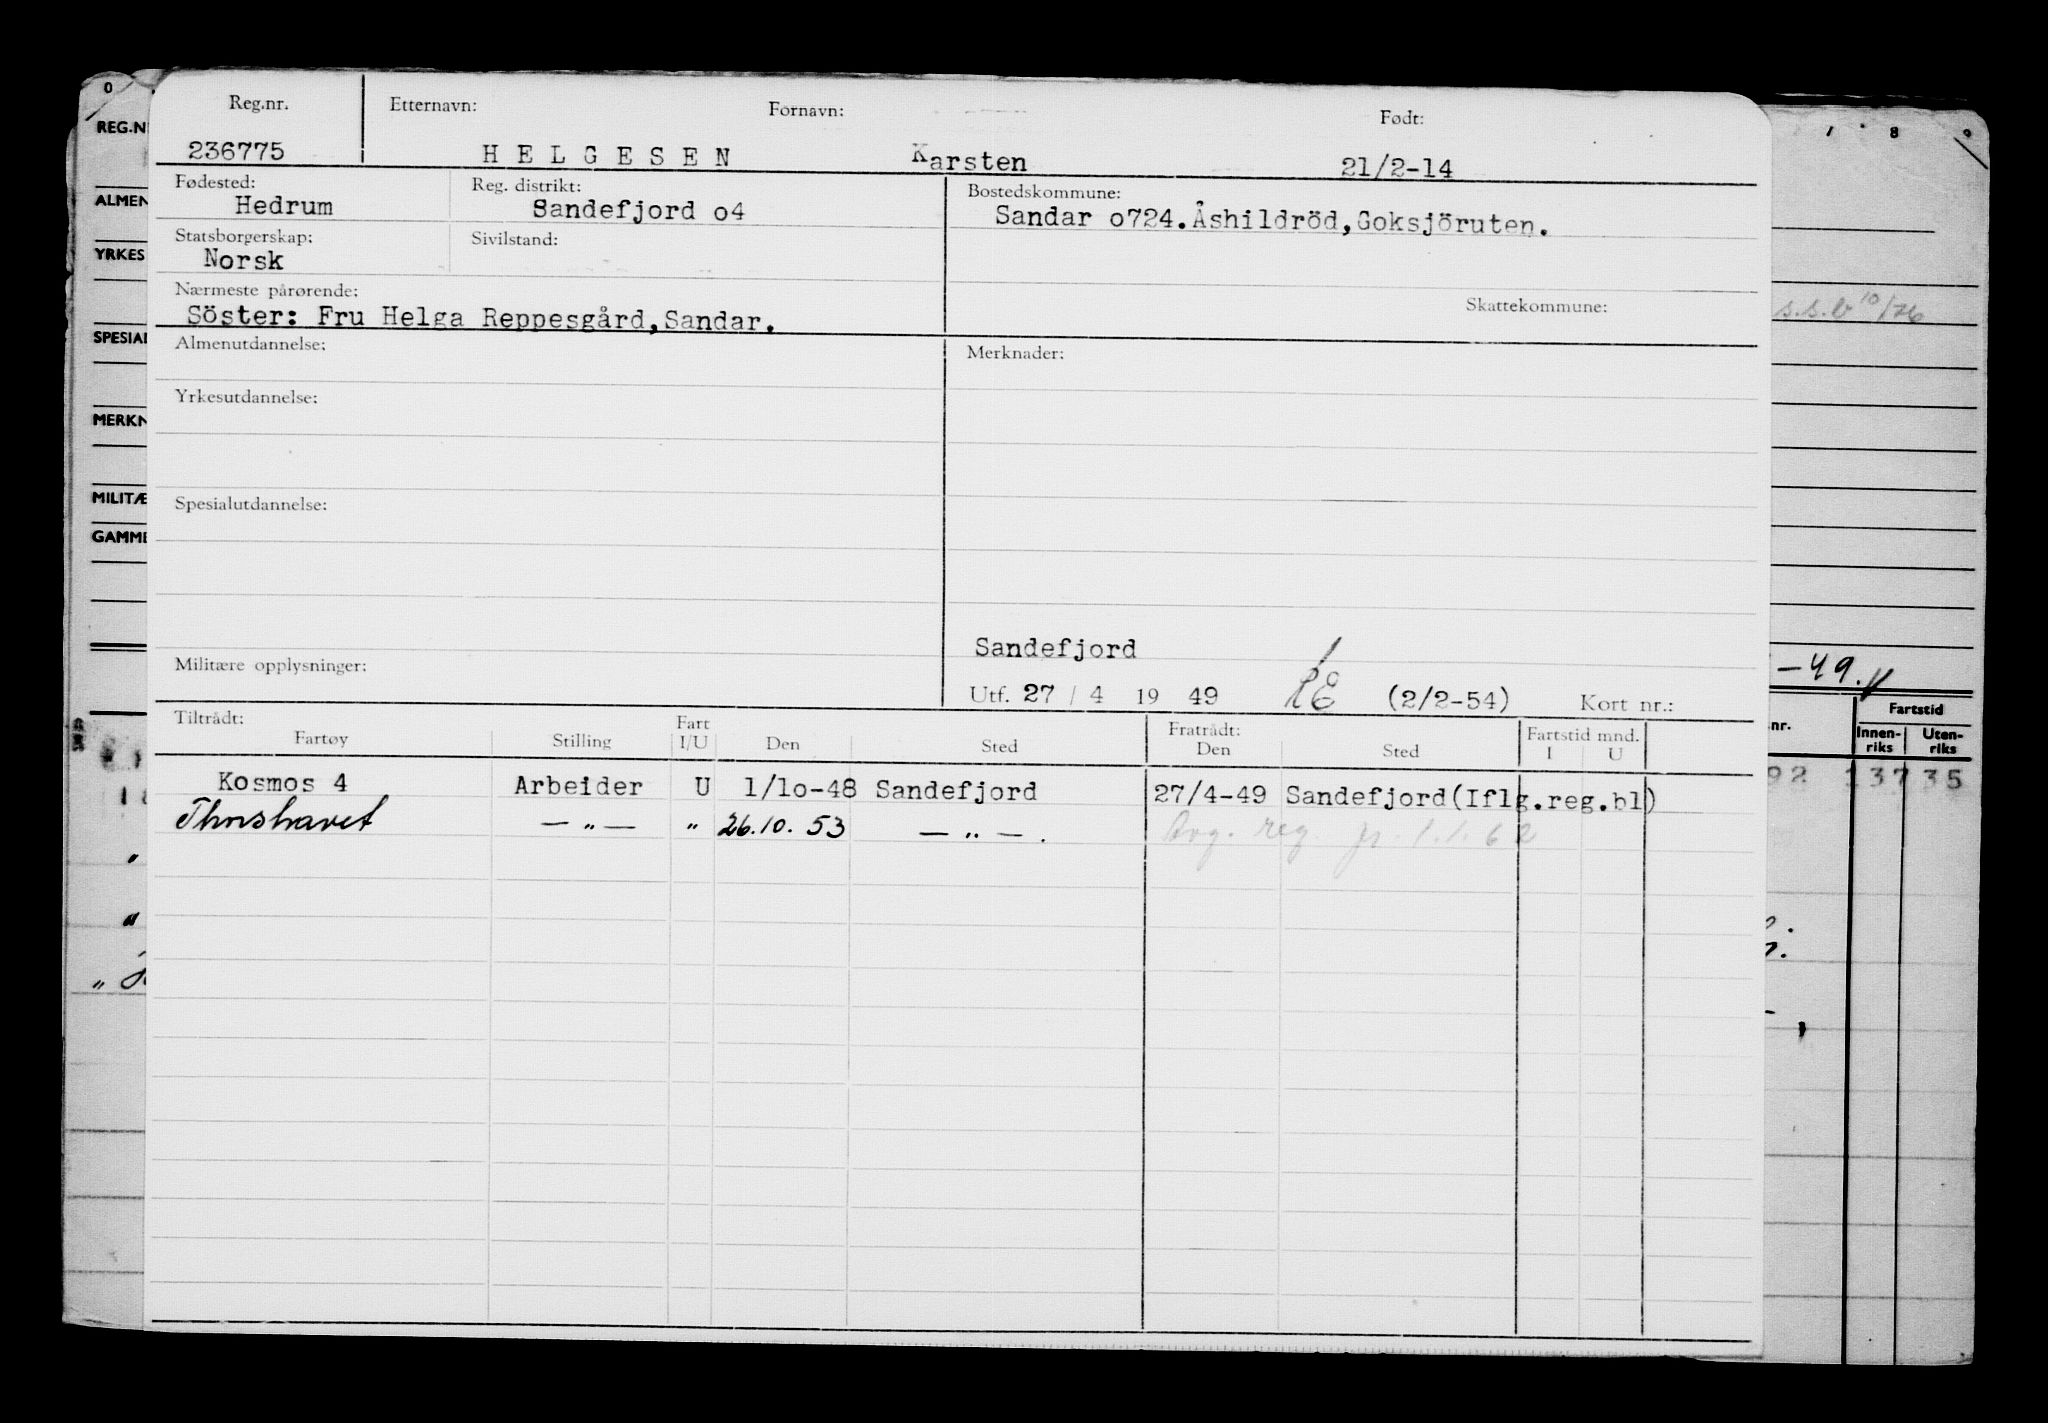 Reg.nr. Etternavn: Fornavn: Født:
236775 H E L G E S E N Karsten 21/2-14
Fødested: Reg. distrikt: Bostedskommune:
Hedrum Sandefjord o4 Sandar o724.Åshildröd,Goksjöruten.
Statsborgerskap: Sivilstand:
Norsk
Nærmeste pårørende: Skattekommune:
Söster: Fru Helga Reppesgård,Sandar.
Almenutdannelse: Merknader:
Yrkesutdannelse:
Spesialutdannelse:
Sandefjord
Militære opplysninger:
Utf. 27 / 4 19 49 RE (2/2-54) Kort nr.:
Tiltrådt: Fart Fratrådt: Fartstid mnd.
Fartøy Stilling I/U Den Sted Den Sted I U
Kosmos 4 Arbeider U 1/1o-48 Sandefjord 27/4-49 Sandefjord(Iflg.reg.bl)
Thorshavet — „ — „ 26.10. 53 — „ — . Avg. reg. pr. 1.1.62
0
REG.N
ALMEN
YRKES
SPESIAL
MERKN
MILITÆ
GAMME
1 8 9
s.s.b 10/76
-49.
nr. Fartstid
Innen-riks Uten-riks
92 13735